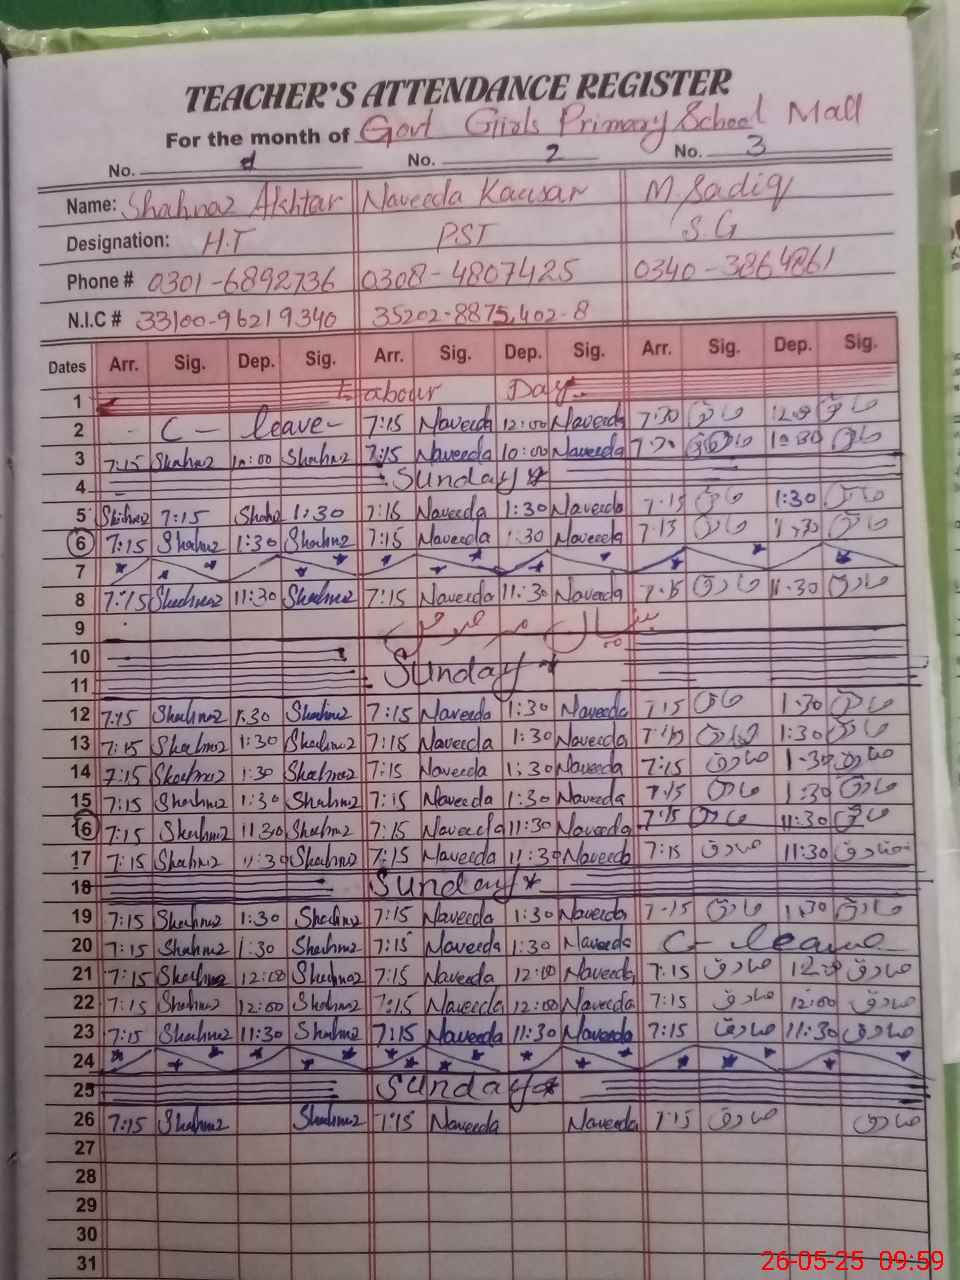 TEACHER'S ATTENDANCE REGISTER
For the month of Govt Girls Primary School Mall
No. 1 No. 2 No. 3
Name: Shahnaz Akhtar Naveeda Kausar M. Sadiq
Designation: H.T P.S.T S.G
Phone # 0301-6892736 0308-4807425 0340-3864861
N.I.C # 33100-96219340 35202-8875,402-8
Dates Arr. Sig. Dep. Sig. Arr. Sig. Dep. Sig. Arr. Sig. Dep. Sig.
1 Labour Day
2 C- leave- 7:15 Naveeda 12:00 Naveeda 7:30 صادق صادق
3 7:15 Shahnaz 10:00 Shahnaz 7:15 Naveeda 10:00 Naveeda صادق 10:30 صادق
4 Sunday
5 Shahnaz 7:15 Shahnaz 1:30 7:15 Naveeda 1:30 Naveeda 7:15 صادق 1:30 صادق
6 7:15 Shahnaz 1:30 Shahnaz 7:15 Naveeda 1:30 Naveeda 7:15 صادق 1:30 صادق
7
8 7:15 Shahnaz 11:30 Shahnaz 7:15 Naveeda 11:30 Naveeda 7:15 صادق 11:30 صادق
9
10 Sunday
11
12 7:15 Shahnaz 1:30 Shahnaz 7:15 Naveeda 1:30 Naveeda 7:15 صادق 1:30 صادق
13 7:15 Shahnaz 1:30 Shahnaz 7:15 Naveeda 1:30 Naveeda 7:15 صادق 1:30 صادق
14 7:15 Shahnaz 1:30 Shahnaz 7:15 Naveeda 1:30 Naveeda 7:15 صادق 1:30 صادق
15 7:15 Shahnaz 1:30 Shahnaz 7:15 Naveeda 1:30 Naveeda 7:15 صادق 1:30 صادق
16 7:15 Shahnaz 11:30 Shahnaz 7:15 Naveeda 11:30 Naveeda 7:15 صادق 11:30 صادق
17 7:15 Shahnaz 11:30 Shahnaz 7:15 Naveeda 11:30 Naveeda 7:15 صادق 11:30 صادق
18 Sunday
19 7:15 Shahnaz 1:30 Shahnaz 7:15 Naveeda 1:30 Naveeda 7:15 صادق 1:30 صادق
20 7:15 Shahnaz 1:30 Shahnaz 7:15 Naveeda 1:30 Naveeda C- leave
21 7:15 Shahnaz 12:00 Shahnaz 7:15 Naveeda 12:00 Naveeda 7:15 صادق صادق
22 7:15 Shahnaz 12:00 Shahnaz 7:15 Naveeda 12:00 Naveeda 7:15 صادق 12:00 صادق
23 7:15 Shahnaz 11:30 Shahnaz 7:15 Naveeda 11:30 Naveeda 7:15 صادق 11:30 صادق
24
25 Sunday
26 7:15 Shahnaz Shahnaz 7:15 Naveeda Naveeda 7:15 صادق صادق
27
28
29
30
31
26-05-25 09:59